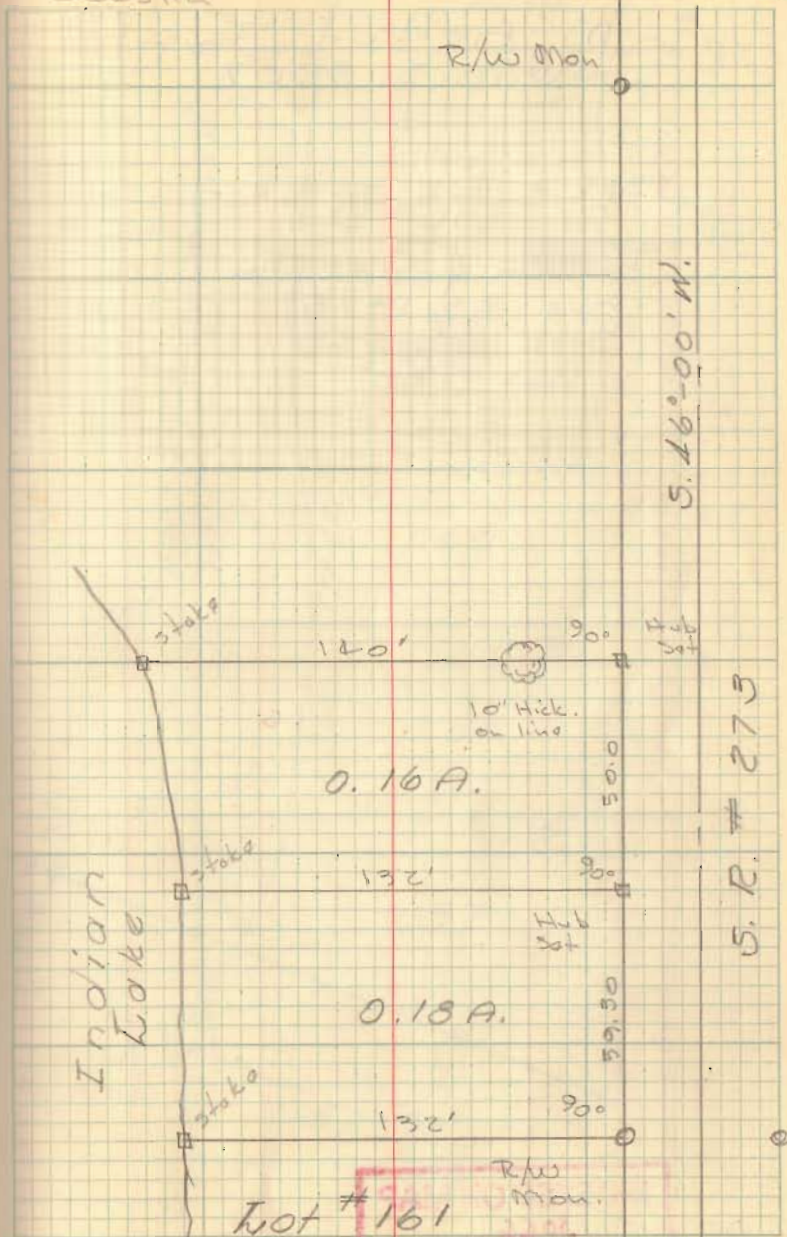 R/W Mon
S. 46°-00' W.
stake
140'
90°
Hub
Set
10" Hick.
on line
0.16 A.
50.0
S. R. # 273
stake
132'
90°
Hub
Set
Indian
Lake
0.18 A.
59.30
stake
132'
90°
R/W
Mon.
Lot # 161